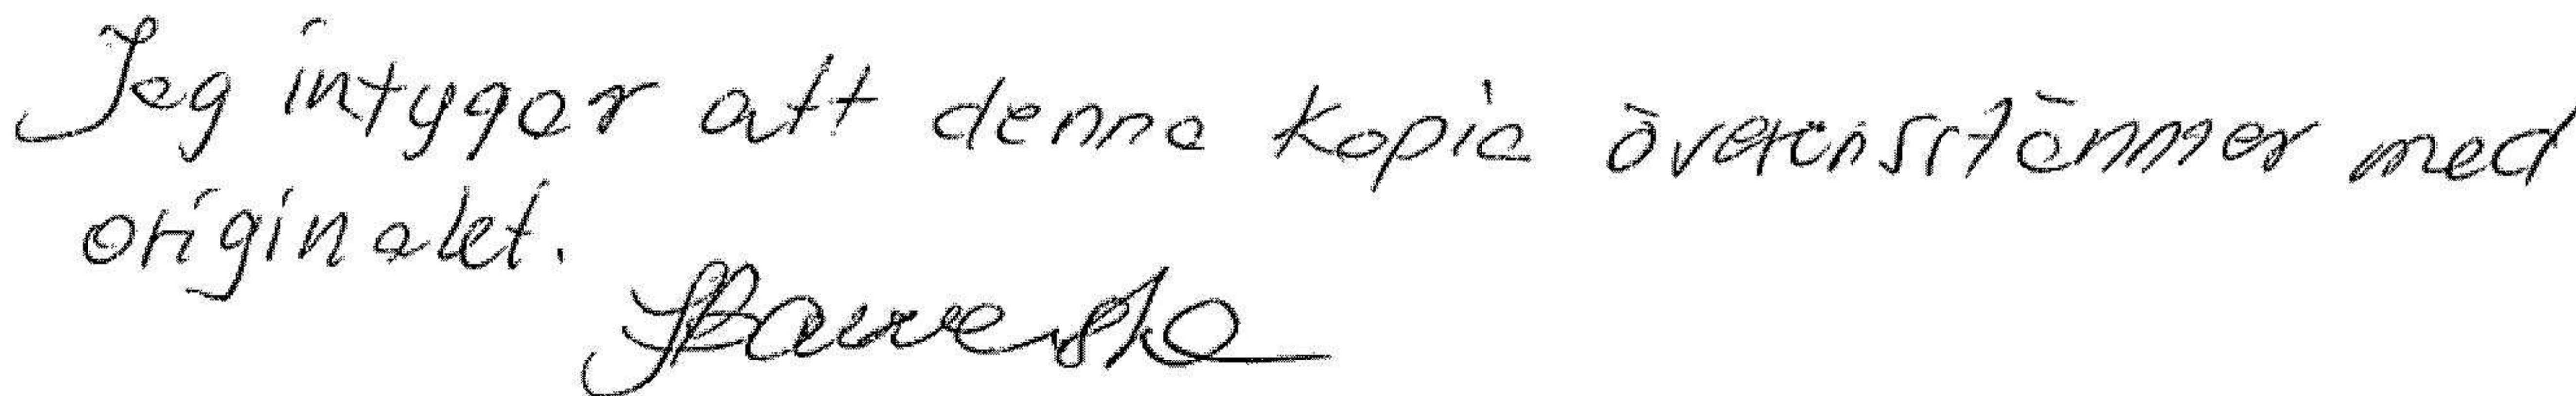 Jag intygar att denna kopia överensstämmer med
originalet.